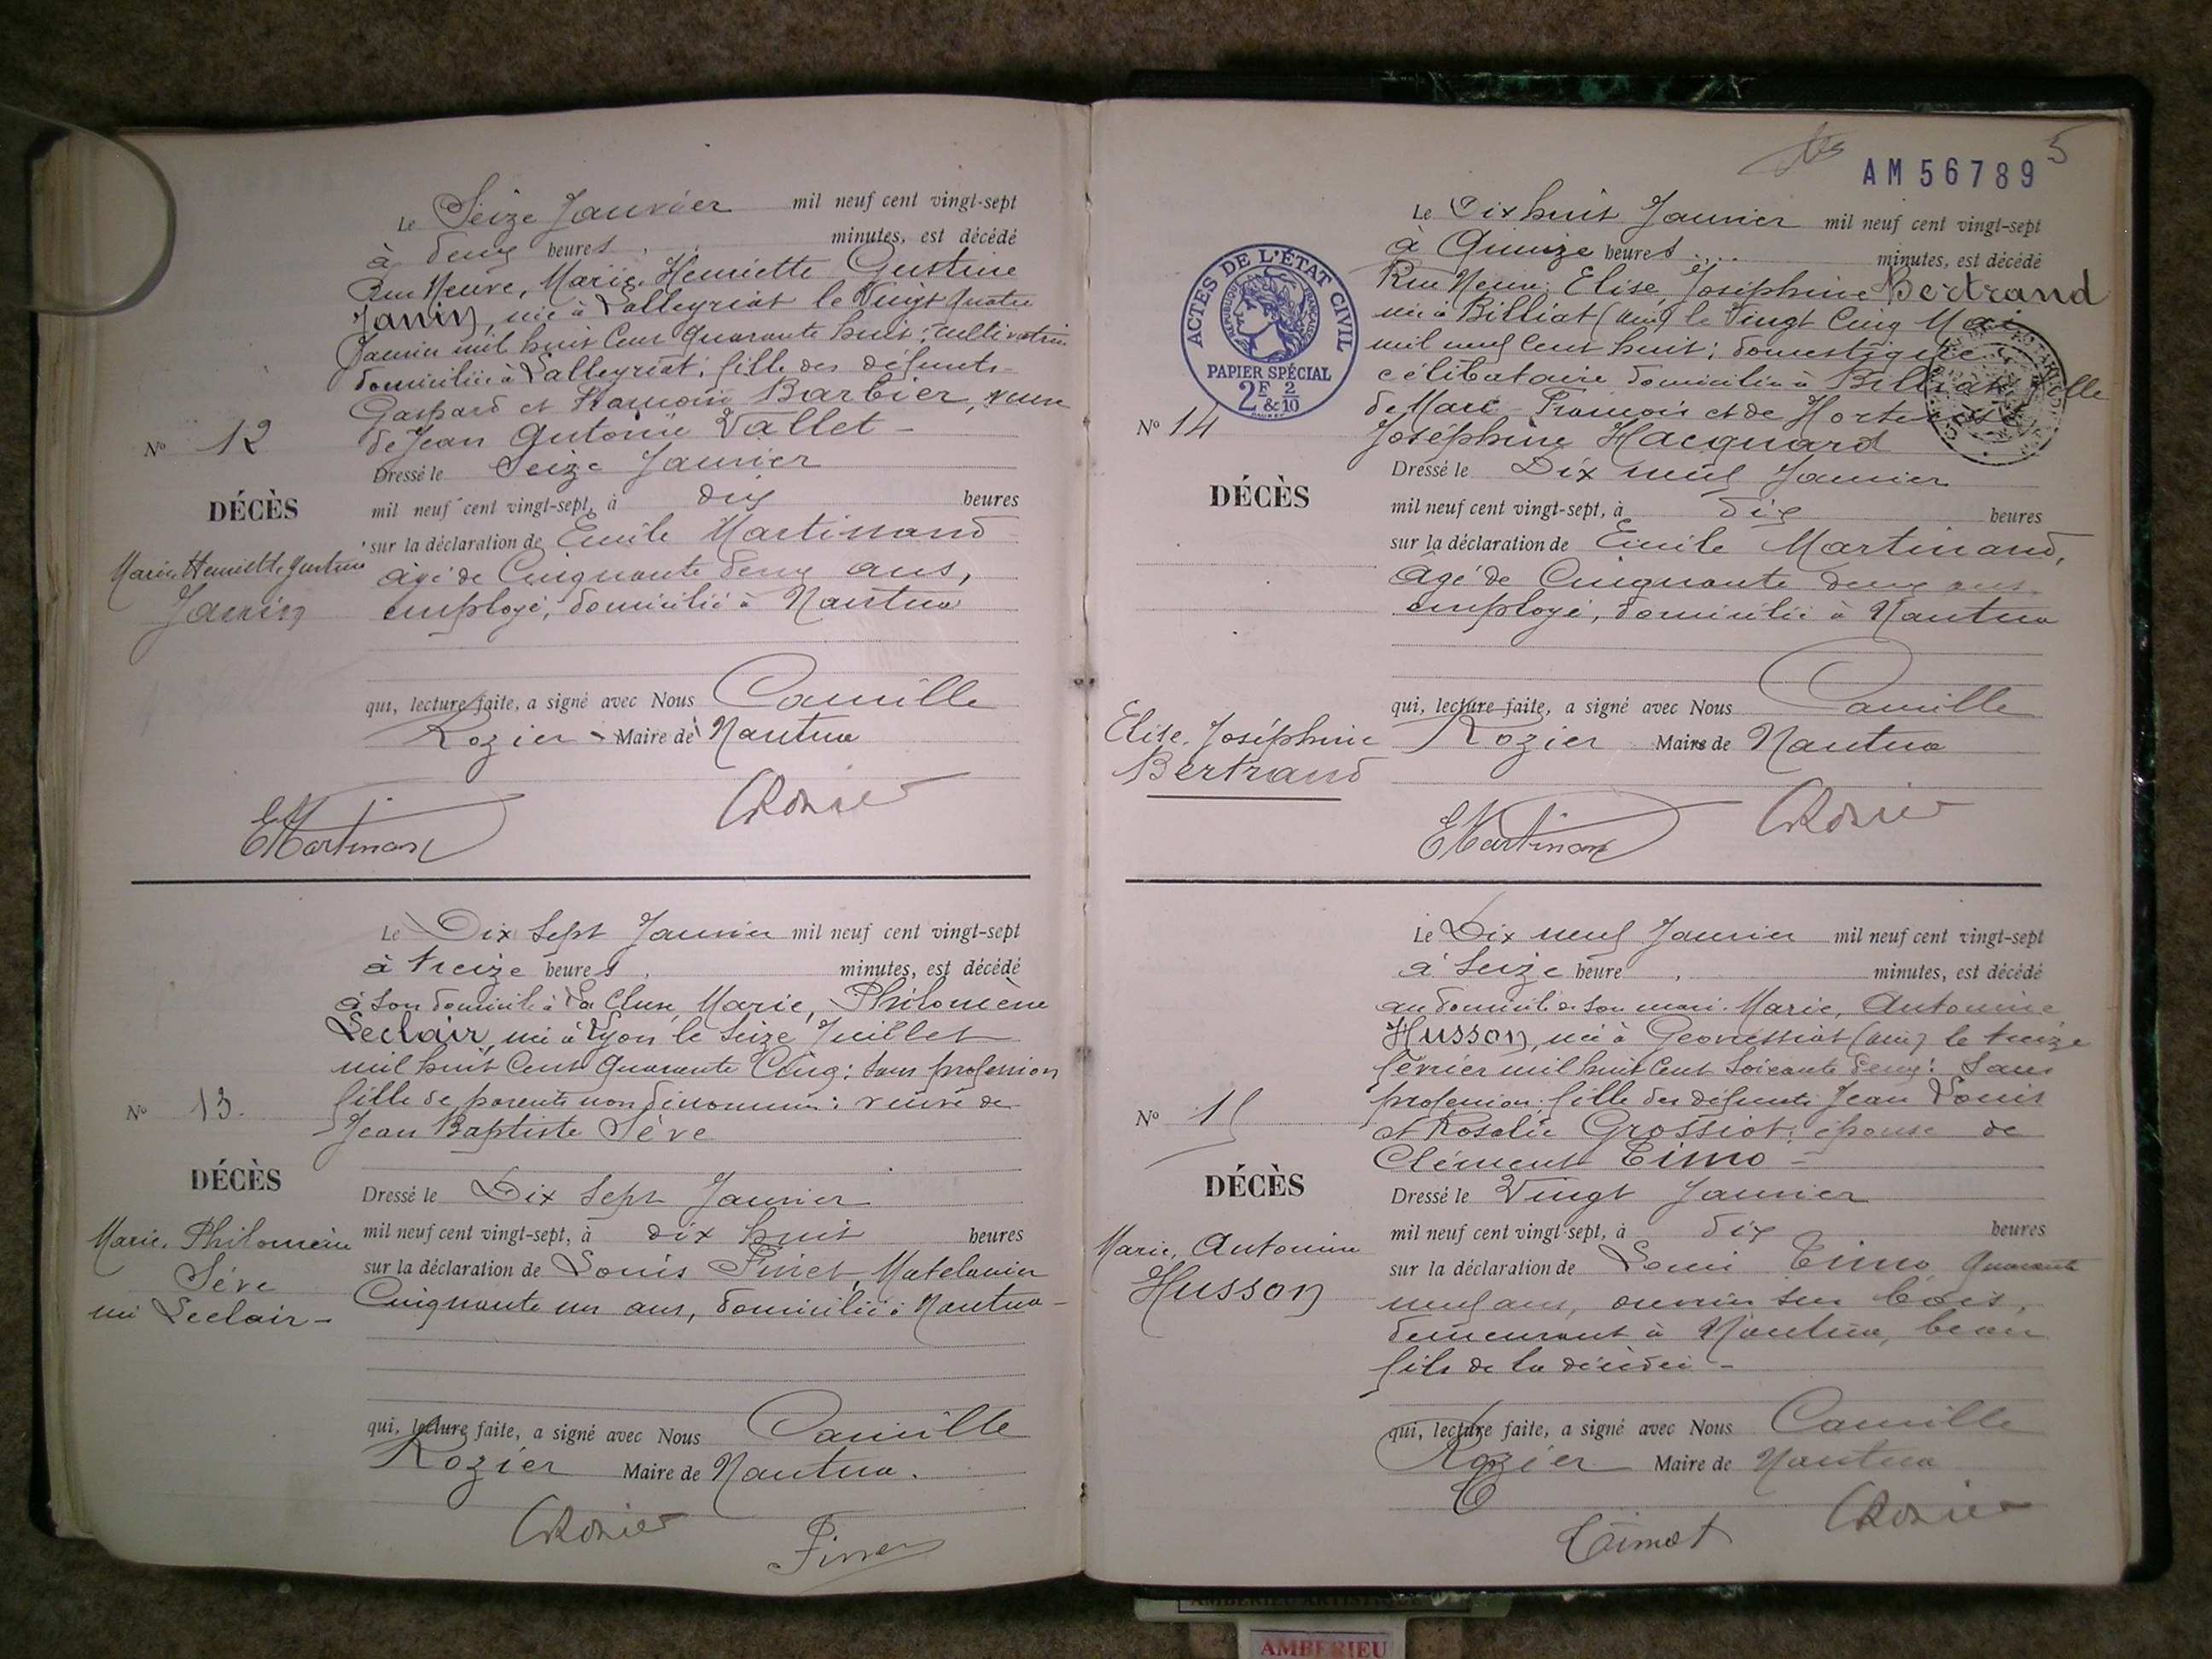 Le Seize Janvier mil neuf cent vingt-sept
à deux heures, minutes, est décédé
Rue Neuve, Marie, Henriette Justine
Janin, née à Lalleyriat le Vingt quatre
Janvier mil huit Cent quarante huit; cultivatrice
domiciliée à Lalleyriat; fille des défunts
Gaspard et Barbier, veuve
de Jean Antoine Vallet -
No 12
Dressé le Seize Janvier
DÉCÈS
mil neuf cent vingt-sept, à dix heures
sur la déclaration de Emile Martinand
Marie Henriette Justine
Janin
âgé de Cinquante deux ans,
employé, domicilié à Nantua
qui, lecture faite, a signé avec Nous Camille
Rozier - Maire de Nantua
EMartinand
CRozier
Le Dix Sept Janvier mil neuf cent vingt-sept
à treize heures, minutes, est décédé
à son domicile à La Cluse, Marie, Philomène
Leclair, née à Lyon le Seize Juillet
mil huit Cent quarante Cinq; sans profession
fille de parents non dénommés; veuve de
Jean Baptiste Sève
No 13.
DÉCÈS
Dressé le Dix Sept Janvier
mil neuf cent vingt-sept, à dix huit heures
Marie, Philomène
Sève
née Leclair -
sur la déclaration de Louis Pinet, Matelassier
Cinquante un ans, domicilié à Nantua -
qui, lecture faite, a signé avec Nous Camille
Rozier Maire de Nantua.
CRozier
AM 56789
5
ACTES DE L'ÉTAT CIVIL
RÉPUBLIQUE FRANÇAISE
PAPIER SPÉCIAL
2F & 2/10
Le Dix huit Janvier mil neuf cent vingt-sept
à Quinze heures .... minutes, est décédé
Rue Neuve, Elise, Joséphine Bertrand
née à Billiat (Ain) le Vingt Cinq Mai
mil neuf Cent huit; domestique
célibataire domiciliée à Billiat, fille
de Marc François et de Hortense
Joséphine Hacquard
No 14
Dressé le Dix neuf Janvier
DÉCÈS
mil neuf cent vingt-sept, à dix heures
sur la déclaration de Emile Martinand,
âgé de Cinquante deux ans
employé, domicilié à Nantua
qui, lecture faite, a signé avec Nous Camille
Rozier Maire de Nantua
Elise, Joséphine
Bertrand
EMartinand
CRozier
Le Dix neuf Janvier mil neuf cent vingt-sept
à Seize heure, minutes, est décédé
au domicile de son mari, Marie, Antonine
Husson, née à Geovressiat (Ain) le treize
février mil huit Cent Soixante deux; Sans
profession; fille des défunts Jean Louis
et Rosalie Grossiot; épouse de
Clément Timo -
No 15
DÉCÈS
Dressé le Vingt Janvier
mil neuf cent vingt-sept, à dix heures
Marie, Antonine
Husson
sur la déclaration de Louis Timo quarante
neuf ans, ouvrier sur bois,
demeurant à Nantua, beau
fils de la décédée -
qui, lecture faite, a signé avec Nous Camille
Rozier Maire de Nantua
Timot
CRozier
AMBERIEU